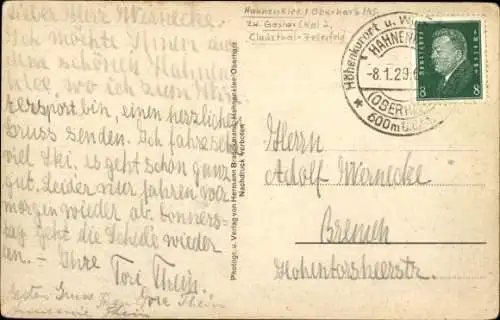 Lieber Herr Wernecke.
Ich möchte Ihnen aus
dem schönen Hahnen-
klee, wo ich zum Win-
tersport bin, einen herzlichen
Gruss senden. Ich fahre sehr
viel Ski, es geht schon ganz
gut. Leider
morgen wieder ab. Donners-
tag geht die Schule wieder
an. - Ihre Tori Thein.
Besten Gruss Frau Thein
Thein
Hahnenklee / Oberharz
zw. Goslar (Ha) 2,
Clausthal-Zellerfeld
Höhenkurort u. W
HAHNEN
-8.1.29.
(OBERH
600m ü.
DEUTSCHES REICH
8 8
Photogr. u. Verlag von Hermann Hahnenklee-Oberharz
Nachdruck verboten
Herrn
Adolf Wernecke
Bremen
Hohentorsheerstr.